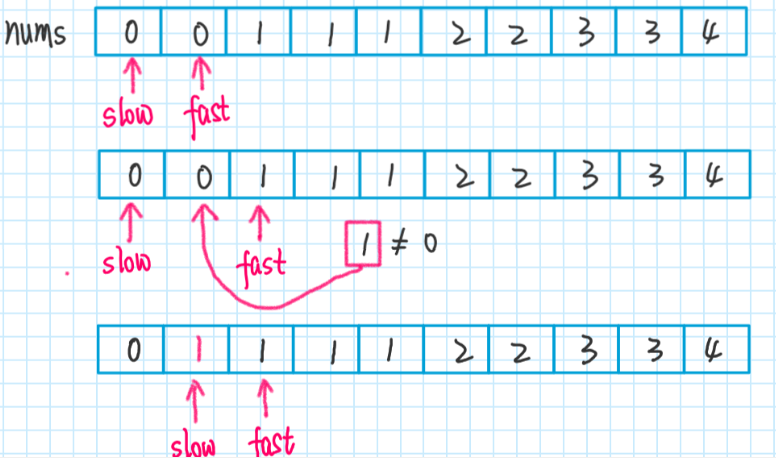 nums 0 0 1 1 1 2 2 3 3 4
slow fast
0 0 1 1 1 2 2 3 3 4
1 ≠ 0
slow fast
0 1 1 1 1 2 2 3 3 4
slow fast